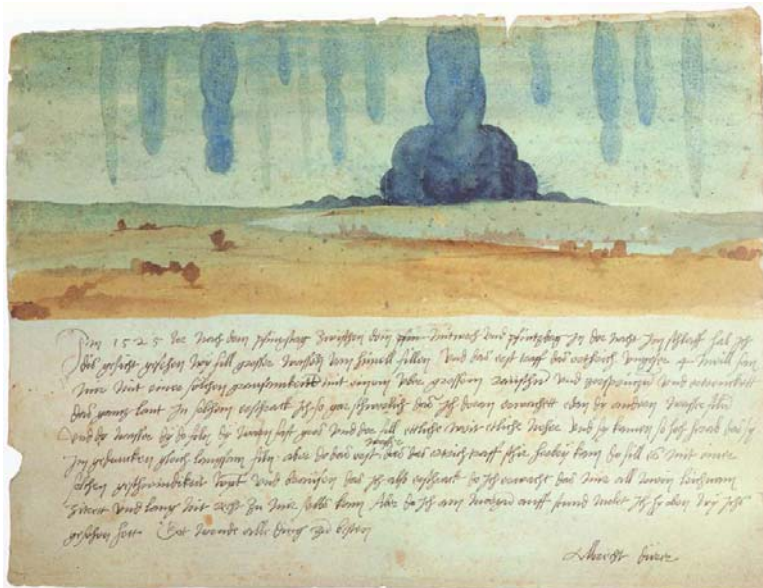 Im 1525 Jor nach dem pfinxstag zwischen dem mitwoch und pfintzdag in der nacht im schlaff hab ich
dis gesicht gesehen wy fill grosser wassern vom himell fillen Und das erst traff das erthrich ungefer 4 meill fan
mir mit einer solchen grausamkeitt mit einem uber grossem raüschn und zersprützn und ertrenckett
das gannz lant In solchem erschrack ich so gar schwerlich das ich doran erwachett edan dy andern wasser filn
Und dy wasser dy do filn dy warn fast gros und der fill ettliche weit ettliche neher und sy kamen so hoch herab das sy
im gedancken gleich langsam filn. aber do das erst wasser das das ertrich traff schir herbey kam do fill es mit einer
solchen geschwindikeit wynt und braüsen das ich also erschrack do ich erwacht das mir all mein leichnam
zitrett und lang nit recht zu mir selbs kam Aber do ich am morgn auff stund molet ich hie oben wy ichs
gesehen hett. Got wende alle ding zu besten
Albrecht dürer